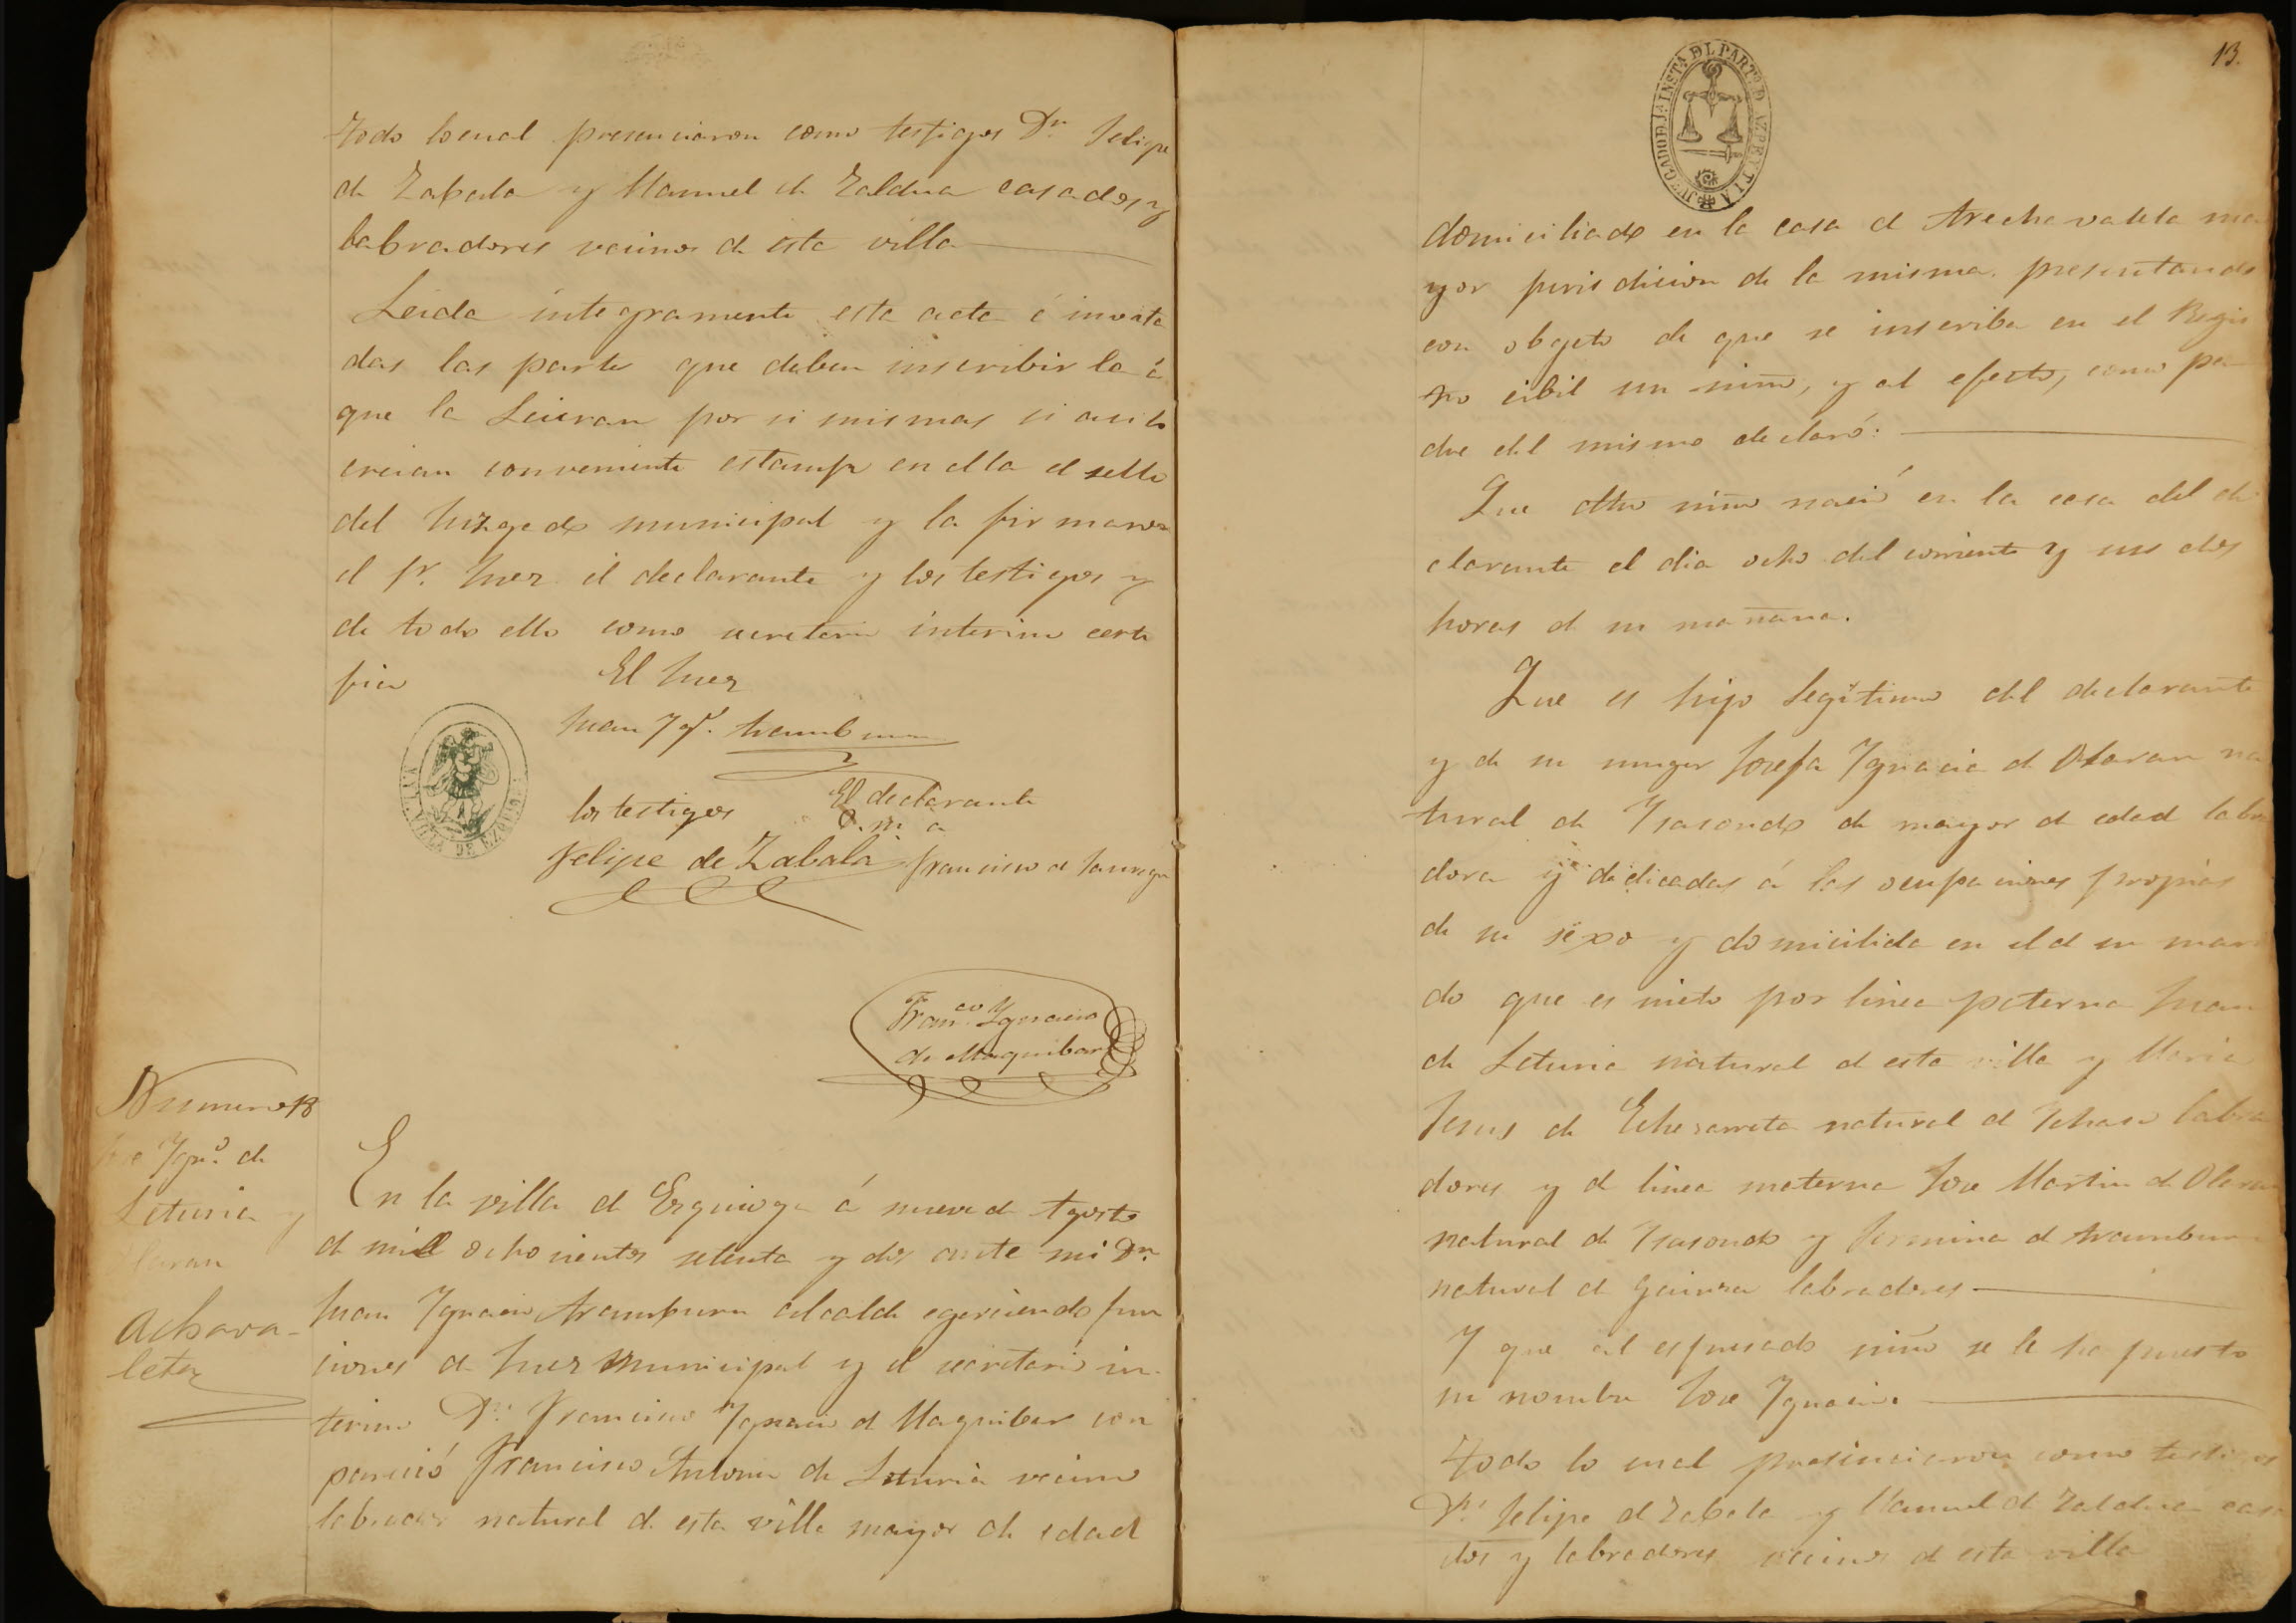 todo locual presenciaron como testigos Dn Felipe
de Zabala y Manuel de Zaldua casados y
labradores vecinos de esta villa
Leida integramente esta acta é invita
das las parte que deben inscribir la á
que la Leieran por si mismas si asi lo
creian conveniente estampa en ella el sello
del Juzgado municipal y la firmaron
el Sr. Juez el declarante y los testigos y
de todo ello como secretario interino certi
fico
El Juez
Juan Ygo. Aramburu
los testigos El declarante
Felipe de Zabala Francisco de Jauregui
Franco Ygnacio
de Maquibar
Numero 13
Jose Ygno. de
Leturia y
Olaran
Achava-
leta
En la villa de Ezquioga á nueve de Agosto
de mil ochocientos setenta y dos ante mi Dn.
Juan Ygnacio Aramburu alcalde egerciendo fun
ciones de Juez municipal y el secretario in-
terino Dn. Francisco Ygnacio de Maquibar con
pareció Francisco Antonio de Leturia vecino
labrador natural de esta villa mayor de edad
13.
JUZGADO D JA INSTA DL PARTO D AZPEITIA
domiciliado en la casa de Arechavaleta ma
yor jurisdicion de la misma. presentando
con objeto de que se inscriba en el Regis
tro cibil un niño, y al efecto, como pa
dre del mismo declaró:
Que dho niño nació en la casa del de
clarante el dia ocho del corriente y sus dos
horas de su mañana.
Que es hijo legitimo del declarante
y de su muger Josefa Ygnacia de Olaran na
tural de Ysasondo de mayor de edad labra
dora y dedicadas á las ocupaciones propias
de su sexo y domicilida en el de su mari
do que es nieto por linea paterna Juan
de Leturia natural de esta villa y Maria
Jesus de Echezarreta natural de Ichaso labra
dores y de linea materna Jose Martin de Olaran
natural de Ysasondo y Fermina de Aramburu
natural de Gainza labradores
Y que al espresado niño se le ha puesto
su nombre Jose Ygnacio.
Todo lo cual presenciaron como testigos
Dn. Felipe de Zabala y Manuel de Zaldua casa
dos y labradores vecinos de esta villa